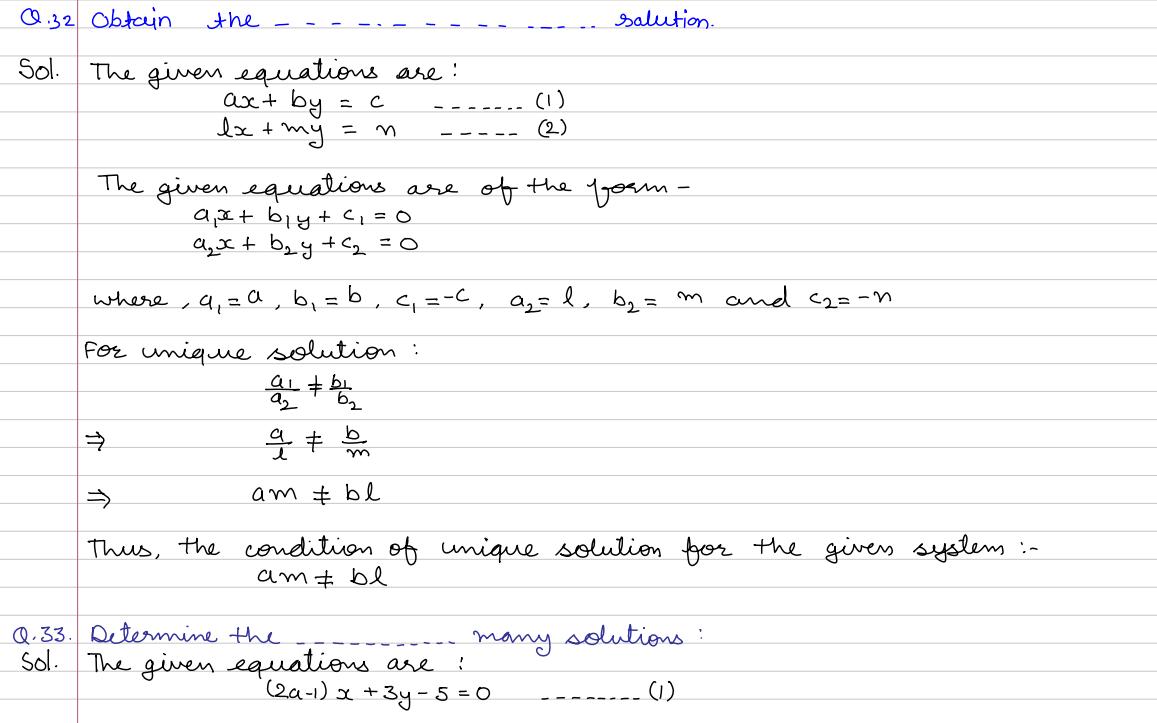 Q.32 Obtain the - - - - . - - - - - - .... solution.
Sol. The given equations are :
ax + by = c ------- (1)
lx + my = n ----- (2)
The given equations are of the form -
a₁x + b₁y + c₁ = 0
a₂x + b₂y + c₂ = 0
where , a₁ = a , b₁ = b , c₁ = -c , a₂ = l , b₂ = m and c₂ = -n
For unique solution :
a₁/a₂ ≠ b₁/b₂
⇒ a/l ≠ b/m
⇒ am ≠ bl
Thus, the condition of unique solution for the given system :-
am ≠ bl
Q.33. Determine the ----------- many solutions :
Sol. The given equations are :
(2a-1) x + 3y - 5 = 0 -------- (1)